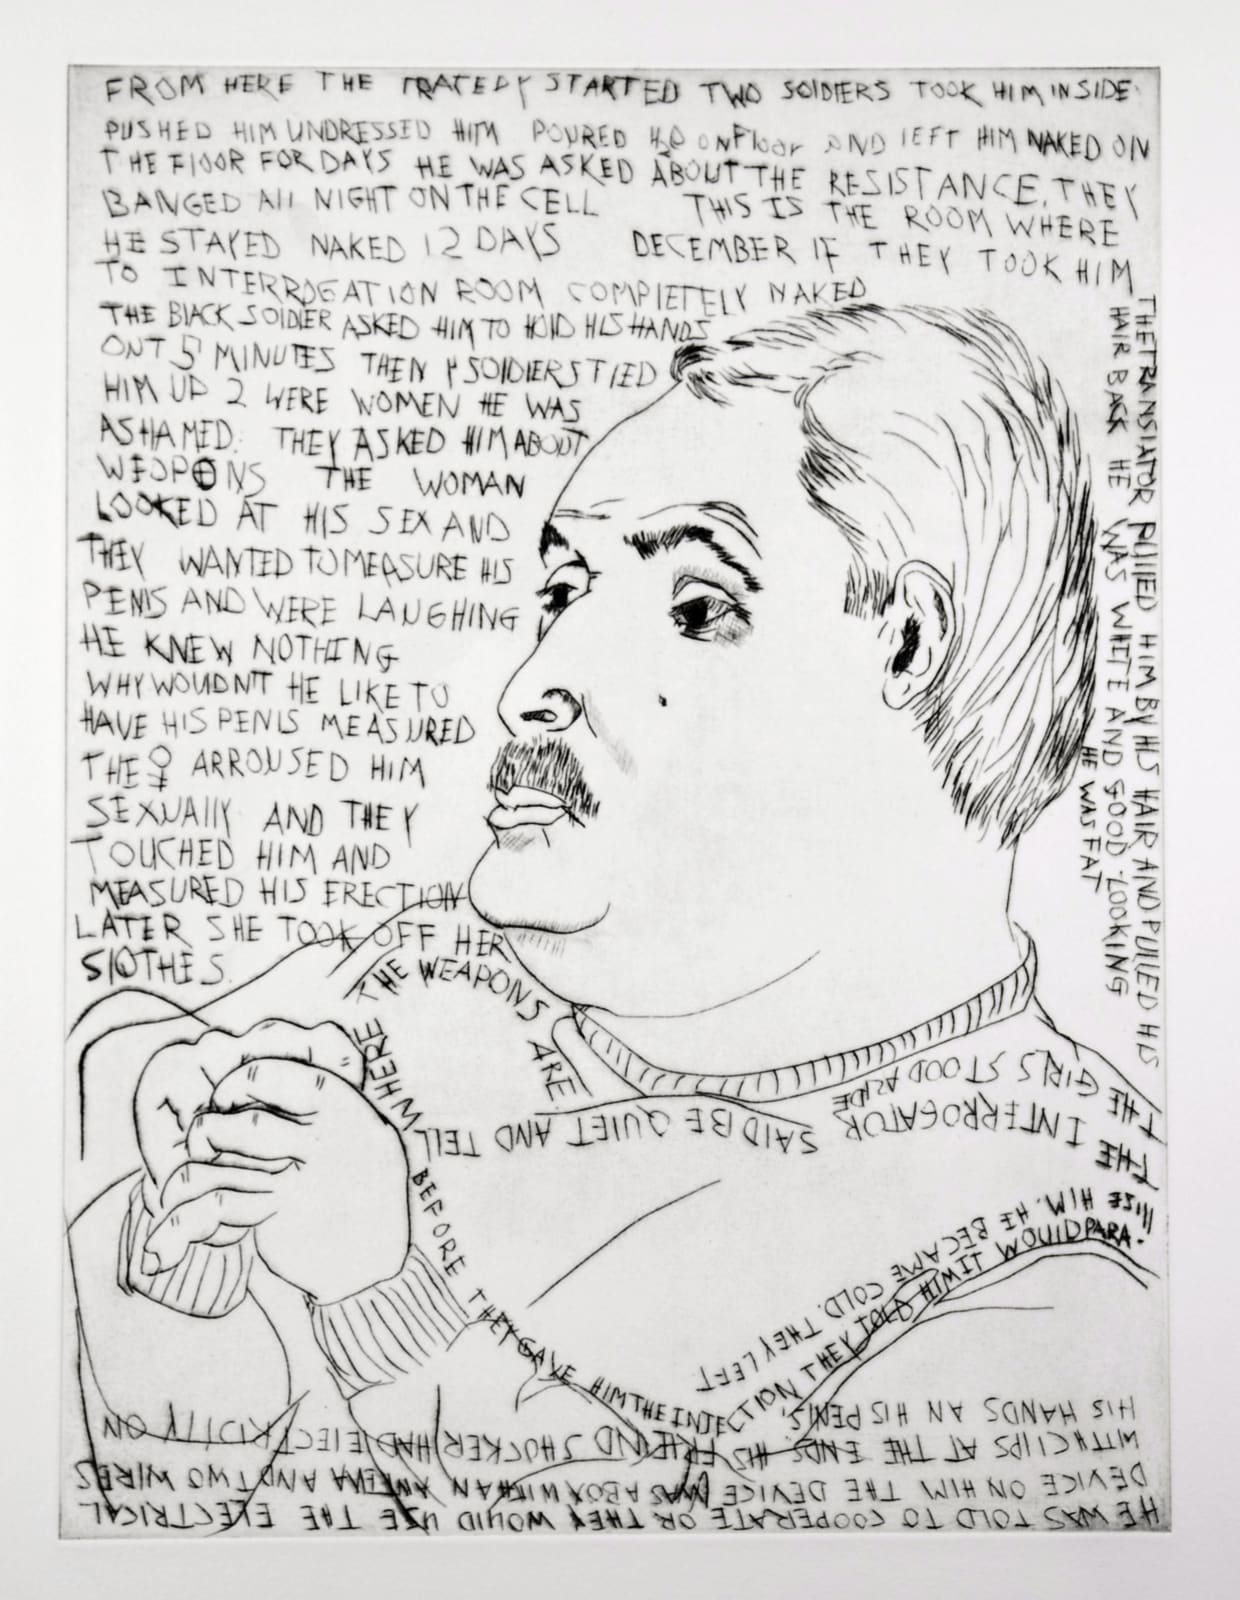 FROM HERE THE TRATEDY STARTED TWO SOIDIERS TOOK HIM INSIDE
PUSHED HIM UNDRESSED HIM POURED H2O ON Floor AND lEFT HIM NAKED ON
THE FlOOR FOR DAYS HE WAS ASKED ABOUT THE RESISTANCE. THEY
BANGED All NIGHT ON THE CELL THIS IS THE ROOM WHERE
HE STAYED NAKED 12 DAYS DECEMBER IF THEY TOOK HIM
TO INTERROGATION ROOM COMPlETElY NAKED
THE BlACK SOlDIER ASKED HIM TO HOlD HIS HANDS
ONT 5 MINUTES THEN Y SOlDIERS TIED
HIM UP 2 WERE WOMEN HE WAS
ASHAMED. THEY ASKED HIM ABOUT
WEOPONS THE WOMAN
LOOKED AT HIS SEX AND
THEY WANTED TO MEASURE HIS
PENIS AND WERE LAUGHING
HE KNEW NOTHING
WHY WOUlDN'T HE LIKE TO
HAVE HIS PENIS MEASURED
THE ♀ ARROUSED HIM
SEXUAllY AND THEY
TOUCHED HIM AND
MEASURED HIS ERECTION
LATER SHE TOOK OFF HER
SlOTHES.
THE TRANSlATOR PUllED HIM BY HIS HAIR AND PULLED HIS
HAIR BACK HE WAS WHITE AND GOOD LOOKING
HE WAS FAT
THE GIRLS STOOD ASIDE
THE INTERROGATOR SAID BE QUIET AND TEll
WHERE THE WEAPONS ARE
BEFORE THEY GAVE HIM THE INJECTION THEY TOlD HIM IT WOUlD PARA-
lISE HIM. HE BECAME COLD. THEY LEFT
HE WAS TOLD TO COOPERATE OR THEY WOUlD USE THE ElECTRICAL
DEVICE ON HIM THE DEVICE WAS A BOX WITH AN ANTENA AND TWO WIRES
WITH ClIPS AT THE ENDS. HIS FRIEND SHOCKER HAD ElECTRICITY ON
HIS HANDS AN HIS PENIS.